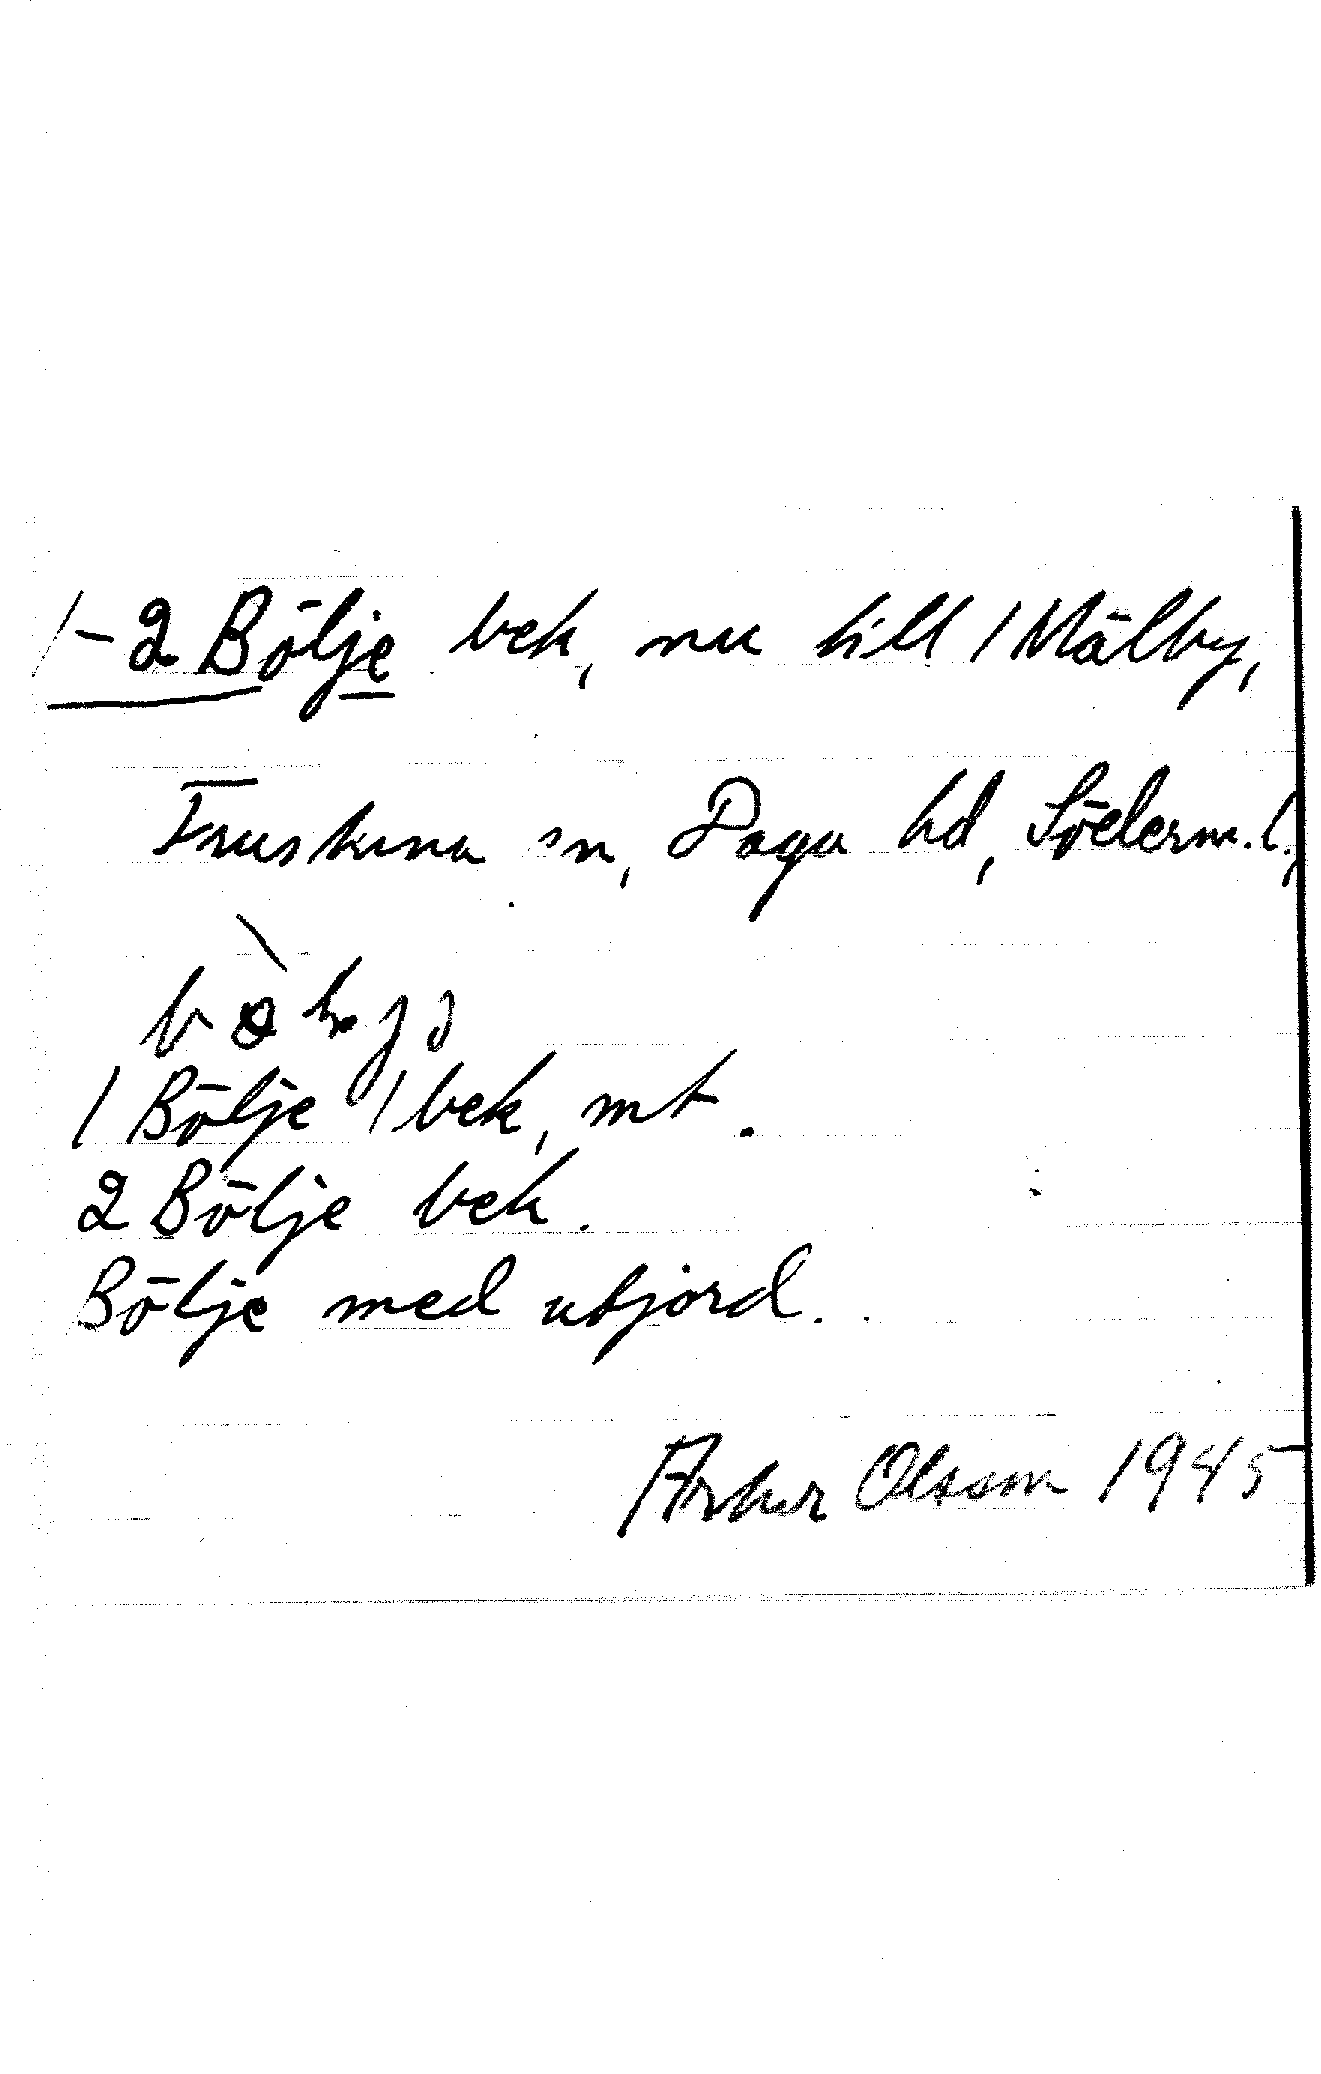 1-2 Bölje bek, nu till 1 Mälby,
Frustuna sn, Daga hd, Söderm. l.,
1 Bölje 1 bek, mt.
2 Bölje bek.
Bölje med utjord.
Arthur Olsson 1945